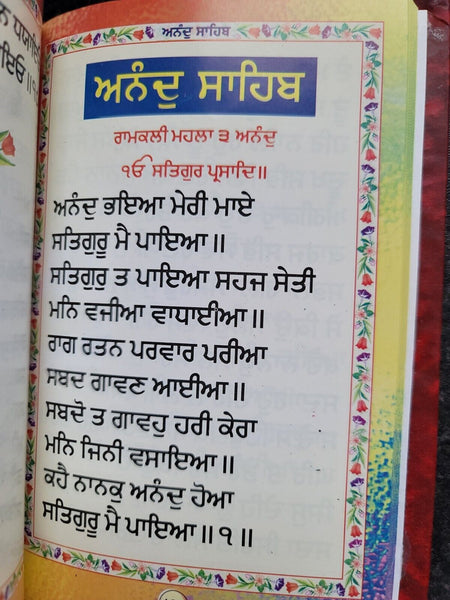 ਅਨੰਦੁ ਸਾਹਿਬ
ਅਨੰਦੁ ਸਾਹਿਬ
ਰਾਮਕਲੀ ਮਹਲਾ ੩ ਅਨੰਦੁ
ੴ ਸਤਿਗੁਰ ਪ੍ਰਸਾਦਿ॥
ਅਨੰਦੁ ਭਇਆ ਮੇਰੀ ਮਾਏ
ਸਤਿਗੁਰੂ ਮੈ ਪਾਇਆ॥
ਸਤਿਗੁਰੁ ਤ ਪਾਇਆ ਸਹਜ ਸੇਤੀ
ਮਨਿ ਵਜੀਆ ਵਾਧਾਈਆ॥
ਰਾਗ ਰਤਨ ਪਰਵਾਰ ਪਰੀਆ
ਸਬਦ ਗਾਵਣ ਆਈਆ॥
ਸਬਦੋ ਤ ਗਾਵਹੁ ਹਰੀ ਕੇਰਾ
ਮਨਿ ਜਿਨੀ ਵਸਾਇਆ॥
ਕਹੈ ਨਾਨਕੁ ਅਨੰਦੁ ਹੋਆ
ਸਤਿਗੁਰੂ ਮੈ ਪਾਇਆ॥੧॥